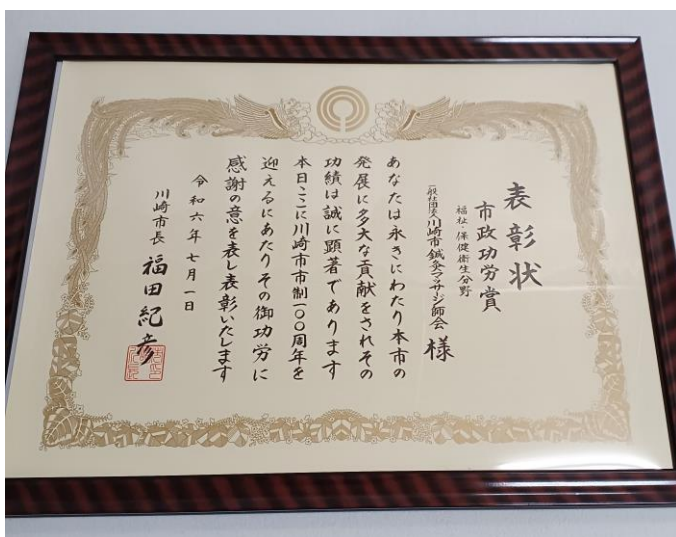 表彰状
市政功労賞
福祉・保健衛生分野
一般社団法人川崎市鍼灸マッサージ師会 様
あなたは永きにわたり本市の
発展に多大な貢献をされその
功績は誠に顕著であります
本日ここに川崎市市制一〇〇周年を
迎えるにあたりその御功労に
感謝の意を表し表彰いたします
令和六年七月一日
川崎市長 福田紀彦